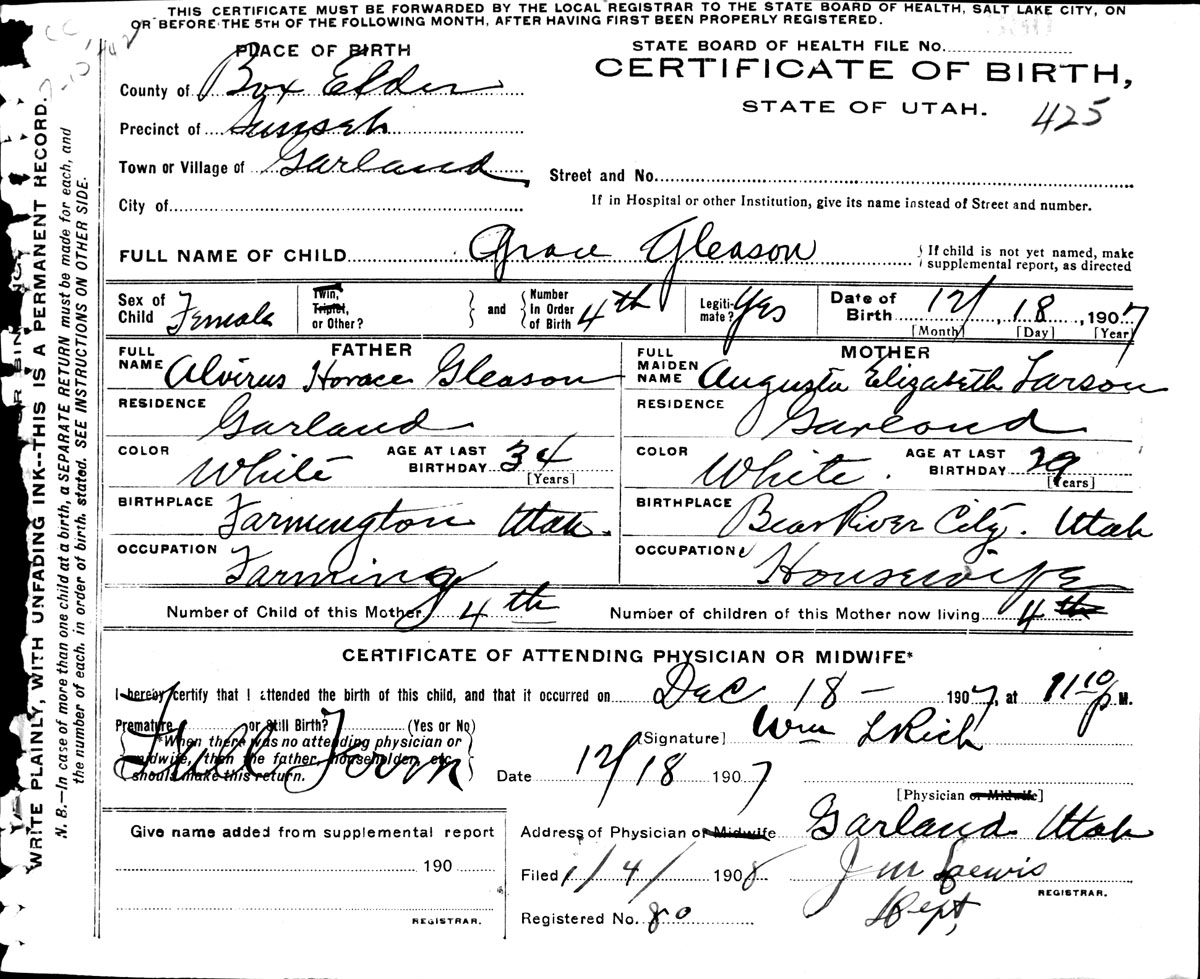 THIS CERTIFICATE MUST BE FORWARDED BY THE LOCAL REGISTRAR TO THE STATE BOARD OF HEALTH, SALT LAKE CITY, ON
OR BEFORE THE 5TH OF THE FOLLOWING MONTH, AFTER HAVING FIRST BEEN PROPERLY REGISTERED.
PLACE OF BIRTH
STATE BOARD OF HEALTH FILE No.
CERTIFICATE OF BIRTH,
STATE OF UTAH. 425
County of Box Elder
Precinct of Sunset
Town or Village of Garland
Street and No.
City of
If in Hospital or other Institution, give its name instead of Street and number.
FULL NAME OF CHILD Grace Gleason
If child is not yet named, make
supplemental report, as directed
Sex of Child Female
Twin, Triplet, or Other? and Number In Order of Birth 4th
Legiti- mate? Yes
Date of Birth 12/, 18, 1907
[Month] [Day] [Year]
FATHER
FULL NAME Alvirus Horace Gleason
RESIDENCE Garland
COLOR White AGE AT LAST BIRTHDAY 34
[Years]
BIRTHPLACE Farmington Utah.
OCCUPATION Farming
MOTHER
FULL MAIDEN NAME Augusta Elizabeth Larson
RESIDENCE Garland
COLOR White. AGE AT LAST BIRTHDAY 29
[Years]
BIRTHPLACE Bear River City. Utah
OCCUPATION Housewife
Number of Child of this Mother 4th
Number of children of this Mother now living 4th
CERTIFICATE OF ATTENDING PHYSICIAN OR MIDWIFE*
I hereby certify that I attended the birth of this child, and that it occurred on Dec 18 - 1907, at 11 10 P M.
Premature or Still Birth? (Yes or No)
Full Term
*When there was no attending physician or
midwife, then the father, householder, etc.
should make this return.
[Signature] Wm L Rich
Date 12/18 1907
[Physician or Midwife]
Give name added from supplemental report
190
REGISTRAR.
Address of Physician or Midwife Garland Utah
Filed 1/4/ 1908 J M Lewis
REGISTRAR.
Registered No. 80 Dept,
WRITE PLAINLY, WITH UNFADING INK--THIS IS A PERMANENT RECORD.
N. B.—In case of more than one child at a birth, a SEPARATE RETURN must be made for each, and
the number of each, in order of birth, stated. SEE INSTRUCTIONS ON OTHER SIDE.